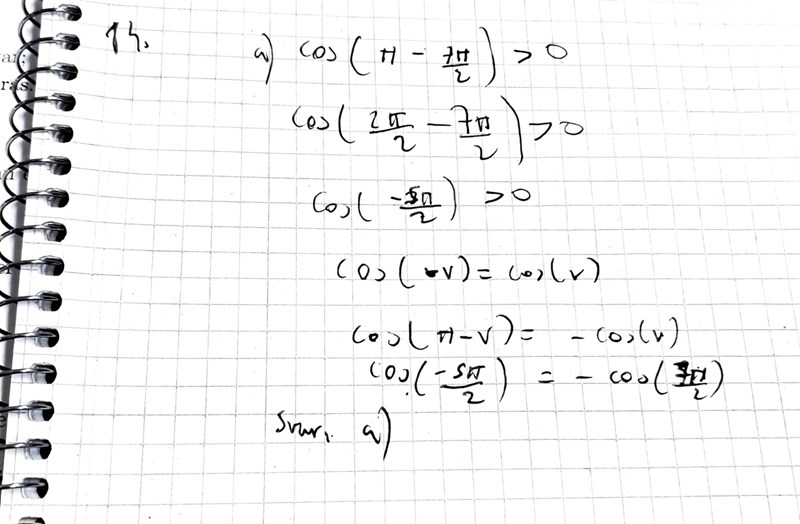 14.
a) cos(π - 7π/2) > 0
cos(2π/2 - 7π/2) > 0
cos(-5π/2) > 0
cos(-v) = cos(v)
cos(π-v) = -cos(v)
cos(-5π/2) = -cos(7π/2)
Svar. a)